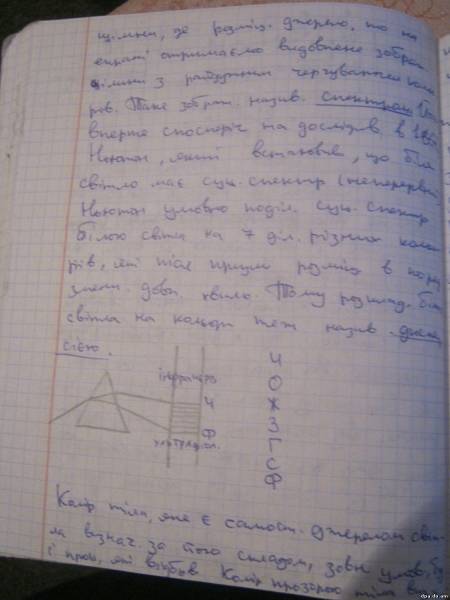 щілини, де розміщ. джерело, то на
екрані отримаємо видовжене зображ
щілини з райдужним чергуванням коль
рів. Таке зображ. назив. спектром
вперше спостеріг та дослідив в
Ньютон, який встановив, що біле
світло має суц. спектр (неперервн
Ньютон умовно поділ. суц. спектр
білого світла на 7 діл. різних кольо
рів, які після призми розміщ в поряд
змени. довж. хвилі. Тому розклад. біл
світла на кольори теж назив. диспер
сією.
інфрачерв
Ч
Ф
ультрафіол.
Ч
О
Ж
З
Г
С
Ф
Колір тіла, яке є самост. джерелом світ
ла визнач. за його складом, зовн умов, бу
і проц, які відбув Колір прозорого тіла в
dpa.da.am